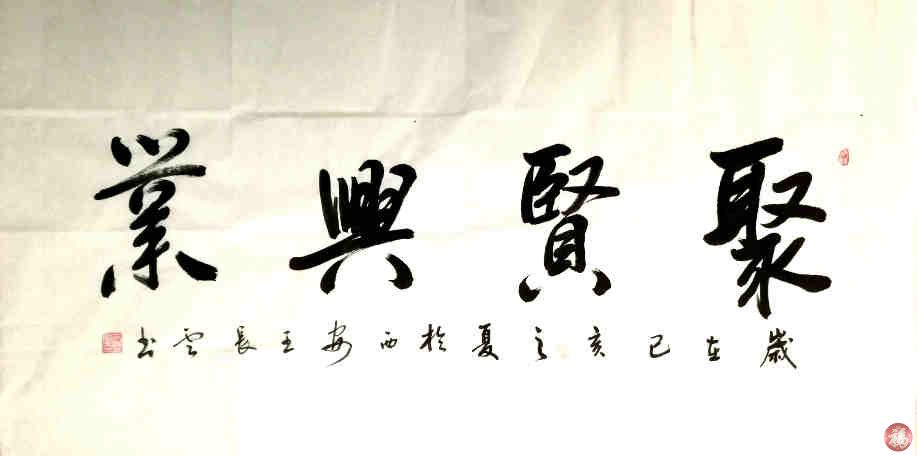 聚賢興業
歲在己亥之夏於西安王長雲书
福